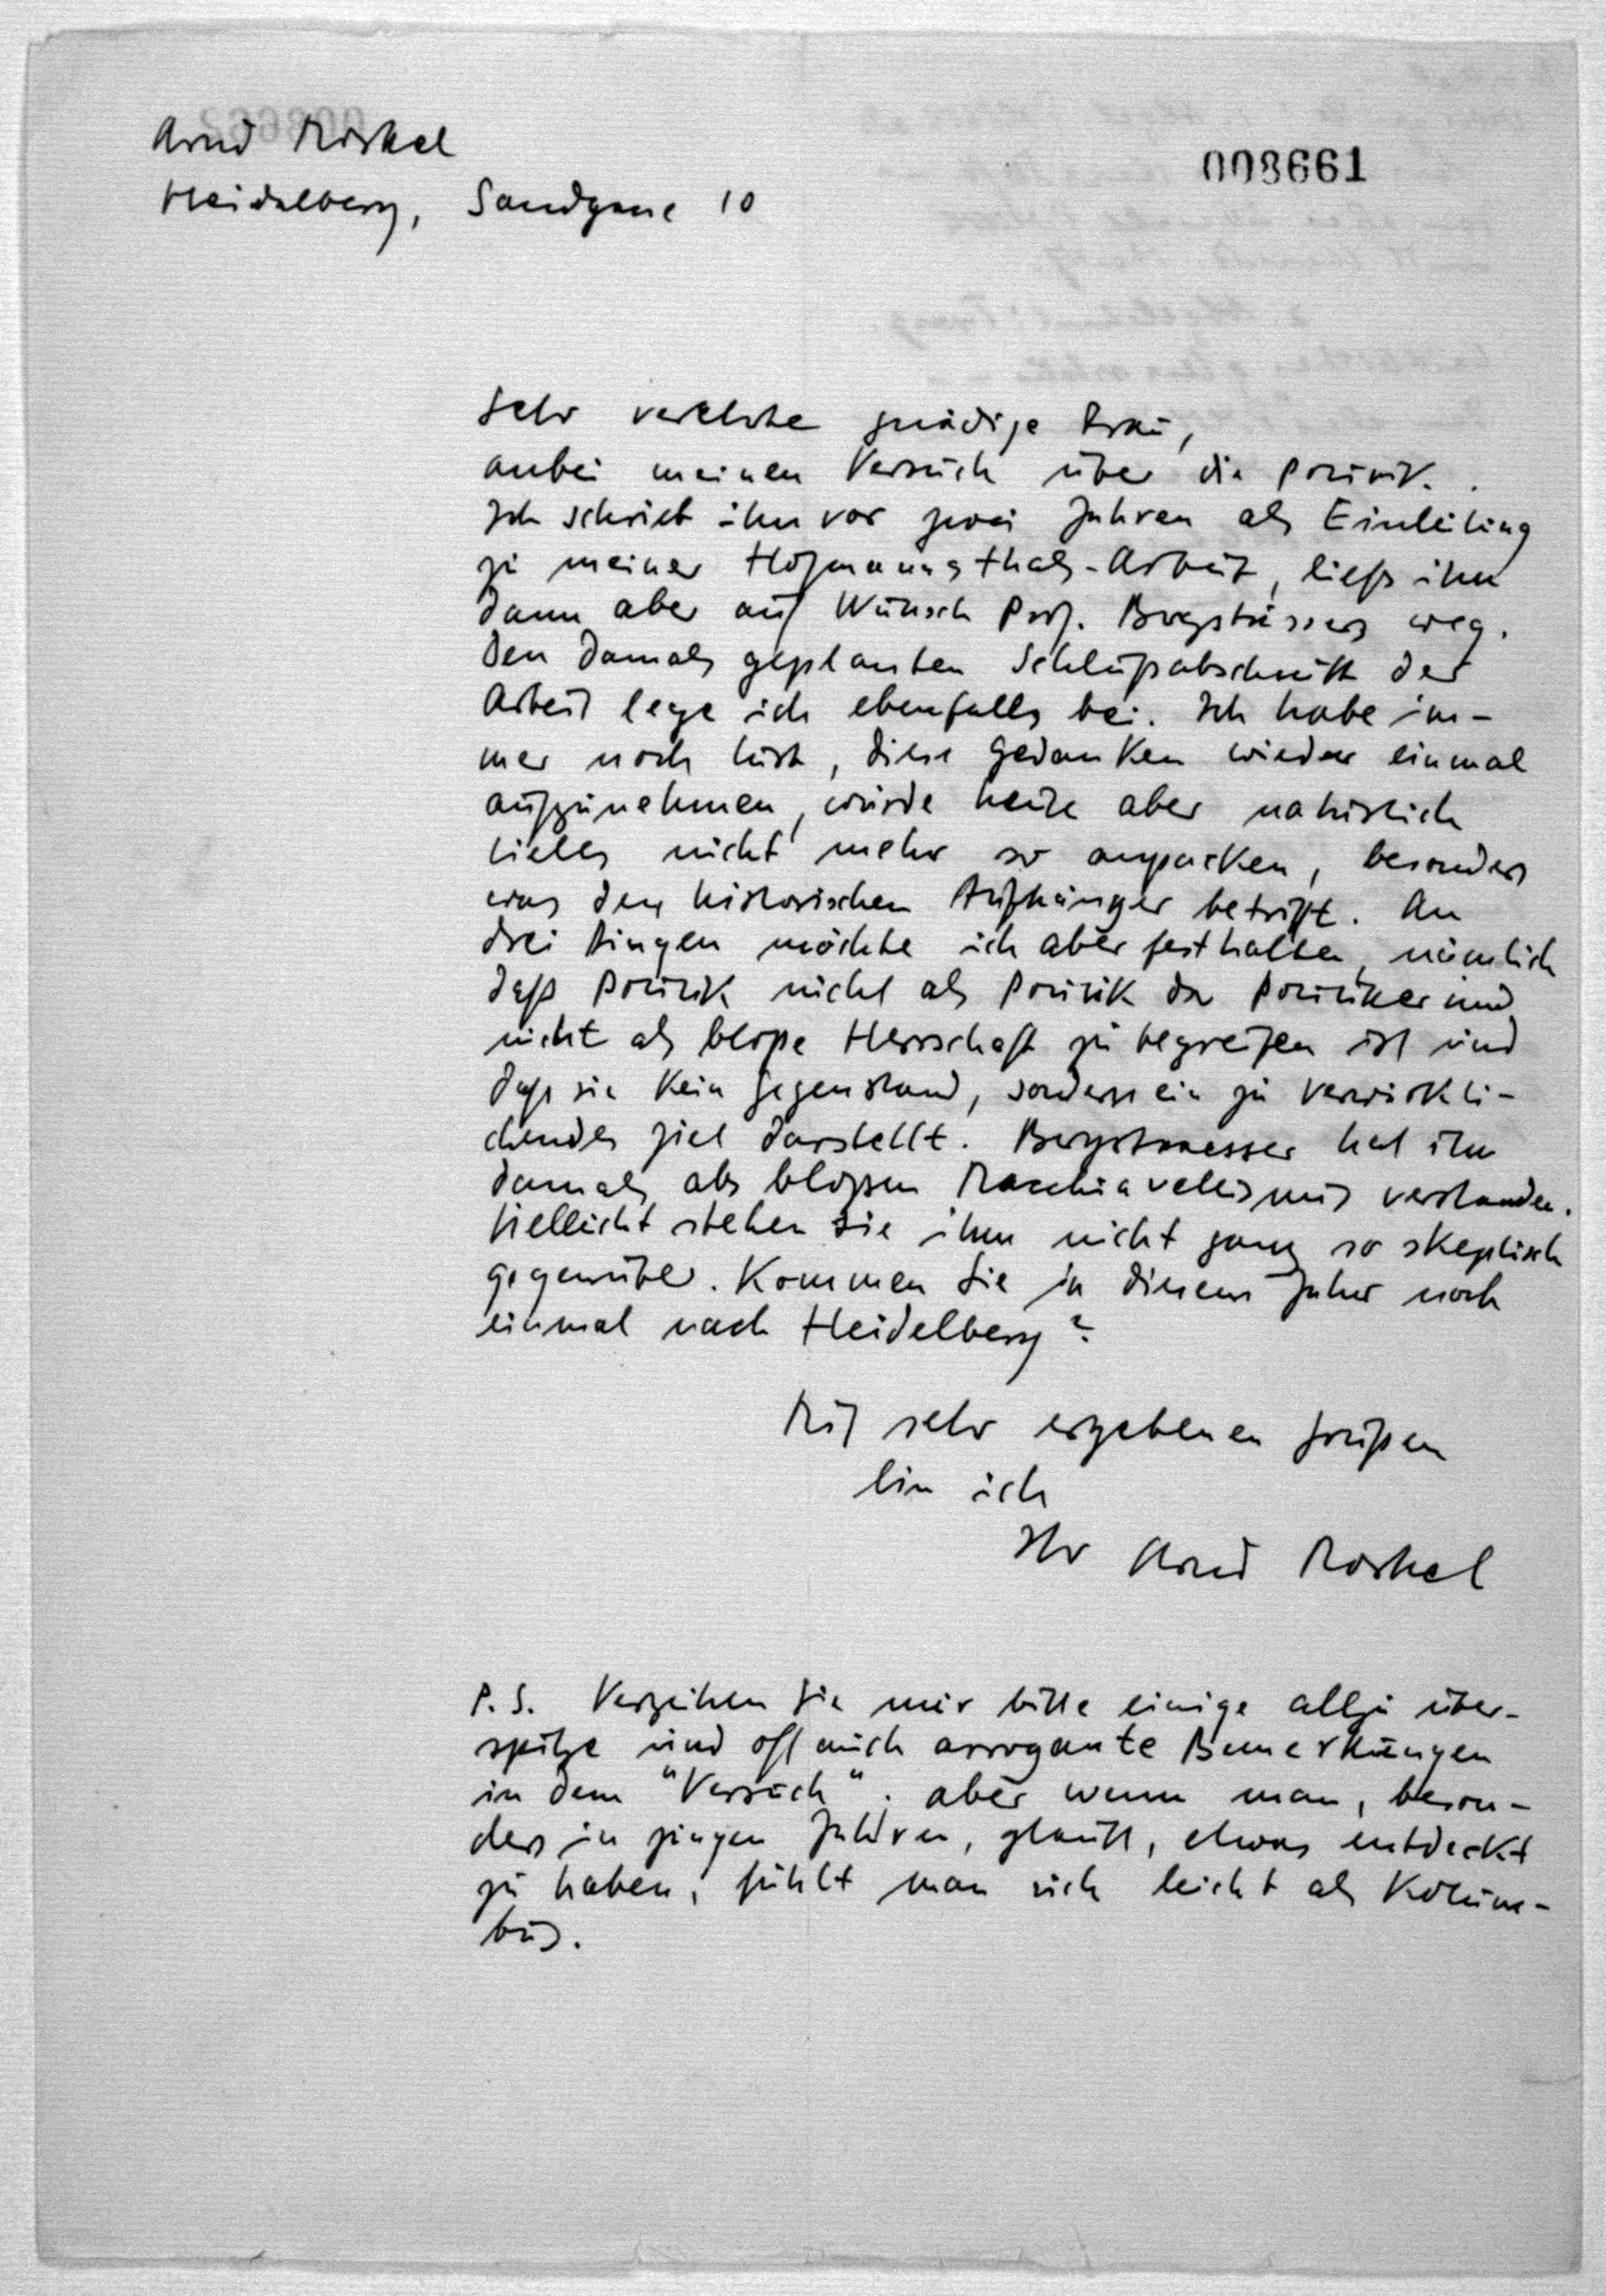 Arnd Morkel
008661
Heidelberg, Sandgasse 10
Sehr verehrte gnädige Frau,
anbei meinen Versuch über die Politik.
Ich schrieb ihn vor zwei Jahren als Einleitung
zu meiner Hofmannsthals-Arbeit, ließ ihn
dann aber auf Wunsch Prof. Bergsträssers weg.
Den damals geplanten Schlußabschnitt der
Arbeit lege ich ebenfalls bei. Ich habe im-
mer noch Lust, diese Gedanken wieder einmal
aufzunehmen, würde heute aber natürlich
vieles nicht mehr so anpacken, besonders
was den historischen Aufhänger betrifft. An
drei Dingen möchte ich aber festhalten, nämlich
daß Politik nicht als Politik der Politiker und
nicht als bloße Herrschaft zu begreifen ist und
daß sie kein Gegenstand, sondern ein zu verwirkli-
chendes Ziel darstellt. Bergstraesser hat ihn
damals als blossen Macchiavellismus verstanden.
Vielleicht stehen Sie ihm nicht ganz so skeptisch
gegenüber. Kommen Sie in diesem Jahr noch
einmal nach Heidelberg?
Mit sehr ergebenen Grüßen
bin ich
Ihr Arnd Morkel
P.S. Verzeihen Sie mir bitte einige allzu über-
spitze und oft auch arrogante Bemerkungen
in dem "Versuch". aber wenn man, beson-
ders in jungen Jahren, glaubt, etwas entdeckt
zu haben, fühlt man sich leicht als Kolum-
bus.